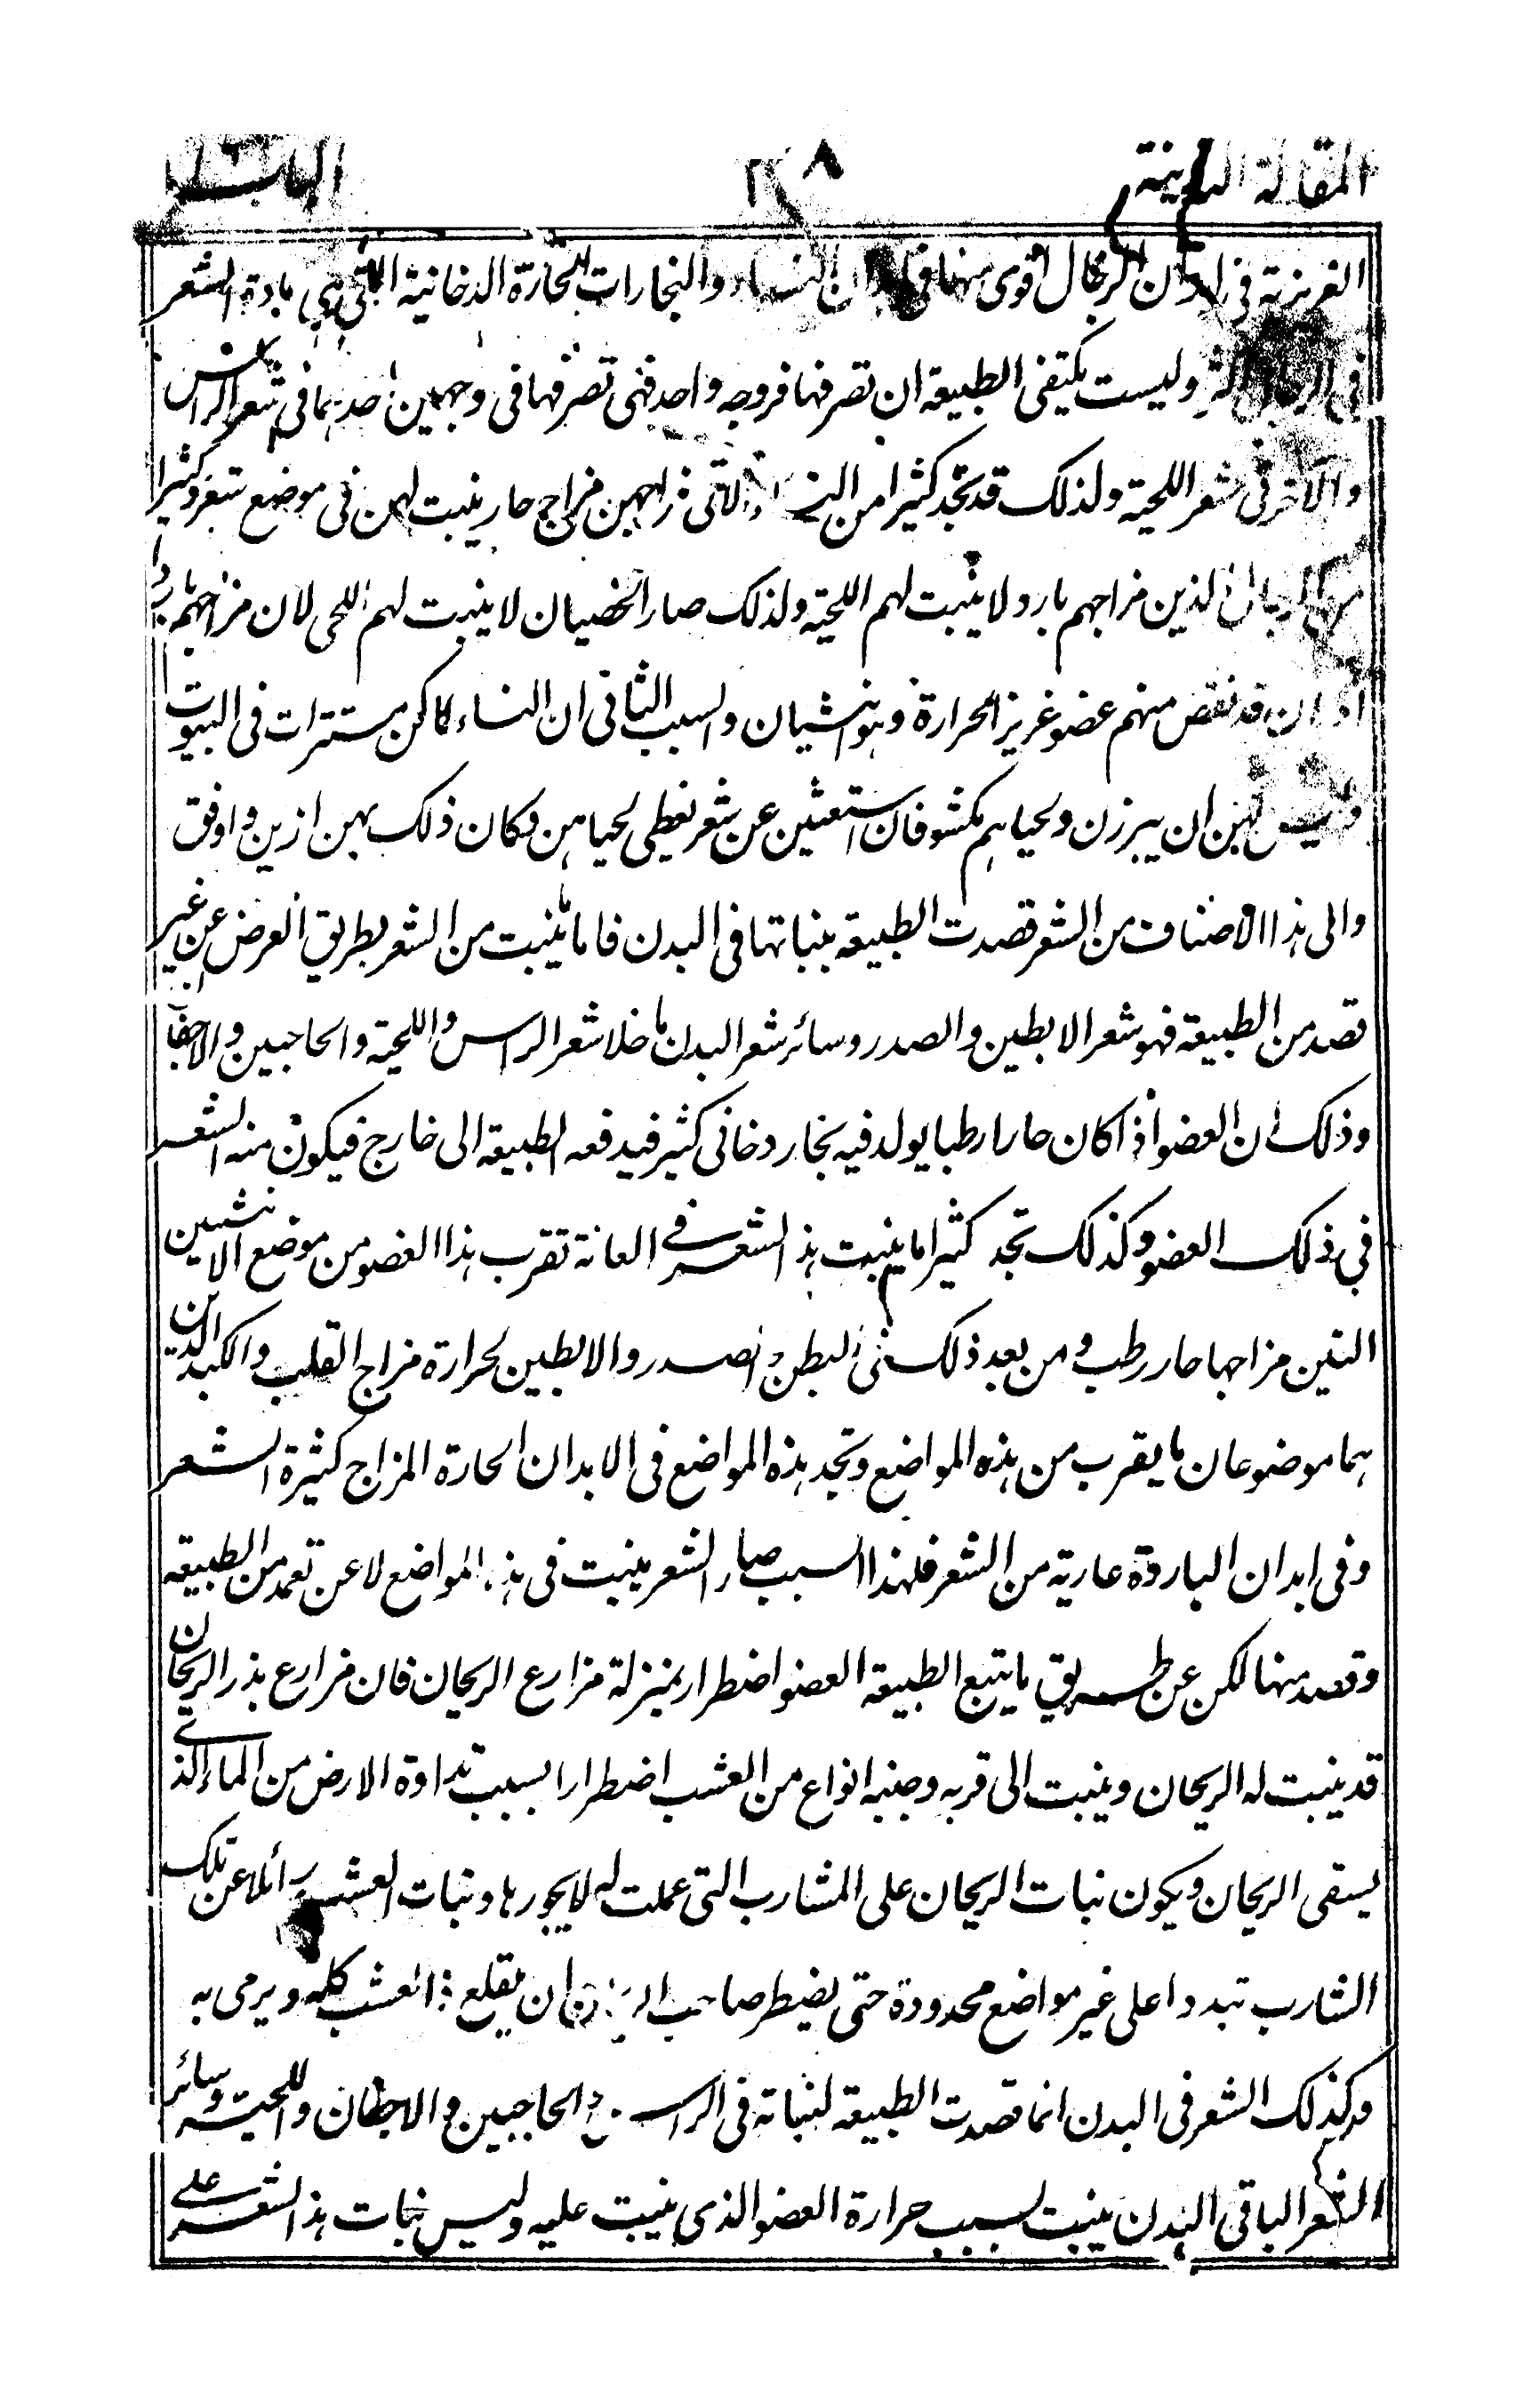 المقالة الثانية ٢٨ الباب
الغريزية فى ابدان الرجال اقوى منها فى ابدان النساء والبخارات الحارة الدخانية التى هى مادة الشعر
فى الرجال وليست يكتفى الطبيعة ان تصرفها فى وجه واحد فهى تصرفها فى وجهين احديهما فى شعر الراس
والآخر فى شعر اللحية ولذلك قد تجد كثيرا من النساء اللاتى مزاجهن مزاج حار ينبت لهن فى موضع شعر وكثيرا
من الرجال الذين مزاجهم بارد لا ينبت لهم اللحية ولذلك صار الخصيان لا ينبت لهم اللحى لان مزاجهم بارد
قد نقص منهم عضو غريز الحرارة وهو انثيان والسبب الثانى ان النساء لما كن مستترات فى البيوت
وليس لهن ان يبرزن ولحياهم مكشوفان استغنين عن شعر يغطى لحياهن وكان ذلك بهن ازين واوفق
والى هذا الاصناف من الشعر قصدت الطبيعة بنباتها فى البدن فاما ما ينبت من الشعر بطريق العرض عن غير
قصد من الطبيعة فهو شعر الابطين والصدر وسائر شعر البدن ما خلا شعر الراس واللحية والحاجبين والاجفان
وذلك ان العضو اذا كان حارا رطبا يولد فيه بخار دخانى كثير فيدفعه الطبيعة الى خارج فيكون منه الشعر
فى ذلك العضو وكذلك تجد كثيرا ما ينبت هذا الشعر فى العانة تقرب هذا العضو من موضع الانثيين
التين مزاجها حار رطب و من بعد ذلك فى البطن والصدر والابطين لحرارة مزاج القلب والكبد الذين
هما موضوعان ما يقرب من هذه المواضع وتجد هذه المواضع فى الابدان الحارة المزاج كثيرة الشعر
وفى ابدان الباردة عارية من الشعر فلهذا السبب صار الشعر ينبت فى هذه المواضع لا عن تعمد من الطبيعة
وقصد منها لكن عن طريق ما يتبع الطبيعة العضو اضطرار بمنزلة مزارع الريحان فان مزارع بذر الريحان
قد ينبت له الريحان وينبت الى قربه وجنبه انواع من العشب اضطرارا بسبب نداوة الارض من الماء الذى
يسقى الريحان ويكون نبات الريحان على المشارب التى عملت له لا يجوزها ونبات العشب زائلا عن تلك
الشارب تبددا على غير مواضع محدودة حتى يضطر صاحب الريحان ان يقلع العشب كله ويرمى به
وكذلك الشعر فى البدن انما قصدت الطبيعة لنباته فى الراس والحاجبين والاجفان واللحية وسائر
الشعر الباقى البدن ينبت بسبب حرارة العضو الذى ينبت عليه وليس نبات هذا الشعر على